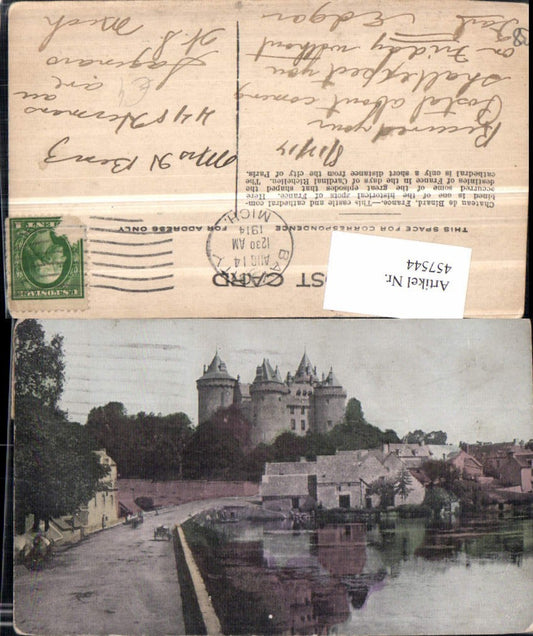 POST CARD
THIS SPACE FOR CORRESPONDENCE
FOR ADDRESS ONLY
Chateau de Binard. France.—This castle and cathedral com-
bined is one of the historical spots of France. Here
occurred some of the great episodes that shaped the
destinies of France in the days of Cardinal Richelieu. The
cathedral is only a short distance from the city of Paris.
8/13/14
Received your
Postal about coming
shall expect you
on Friday without
fail Edgar
Mrs H Benz
448 Hermans
Saginaw
W. S. Mich
AUG 14
1230 AM
1914
MICH.
U.S. POSTAGE
Artikel Nr.
457544